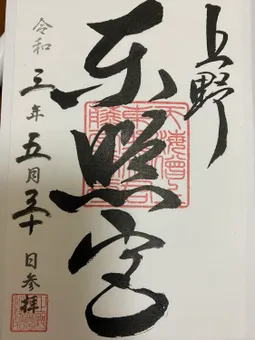 上野
東照宮
令和三年五月三十日参拝